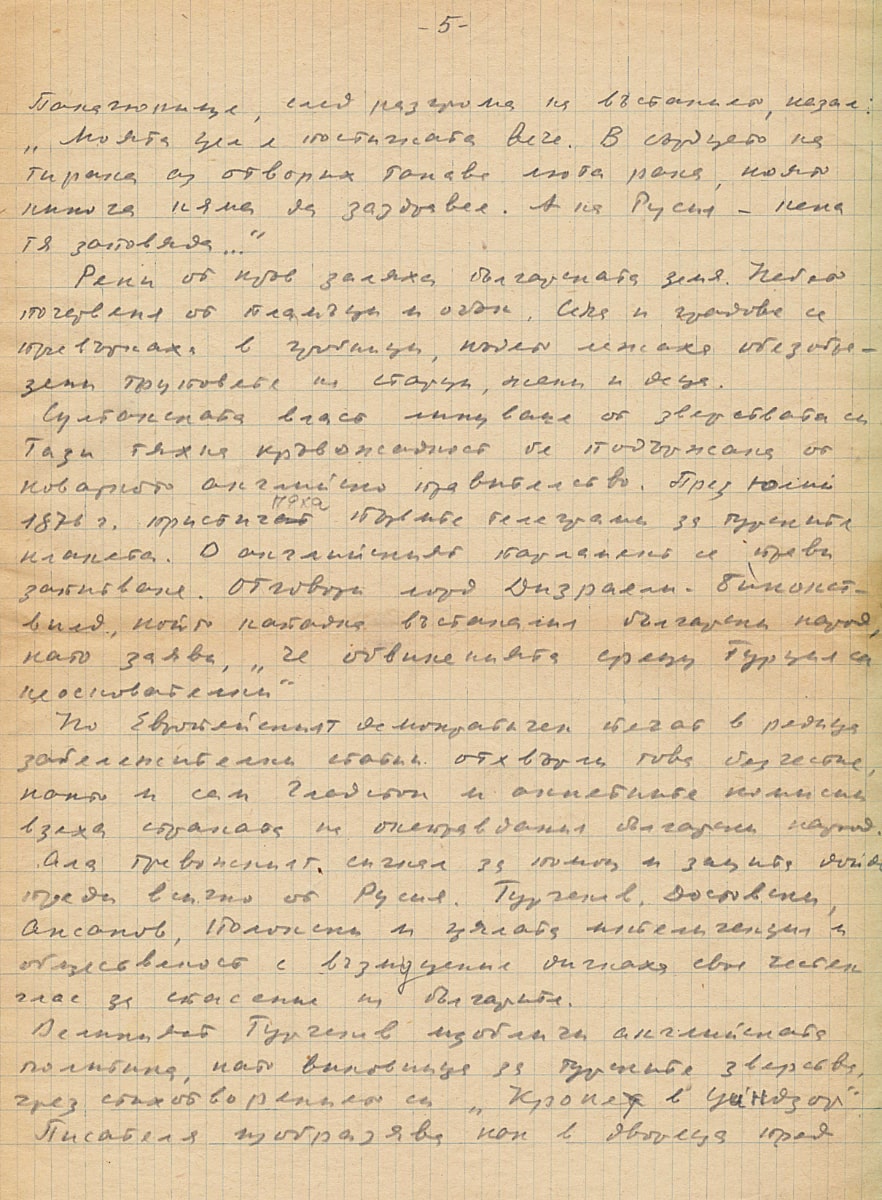 - 5 -
Панагюрище, след разгрома на въстанието, казал:
„ Моята цел е постигната вече. В сърдцето на
тирана аз отворих такава люта рана, която
никога няма да заздравее. А на Русия – нека
тя заповяда..."
Реки от кръв заляха българската земя. Небето
почервеня от пламъци и огън. Села и градове се
превърнаха в гробници, където лежаха обезобра-
зени труповете на старци, жени и деца.
Султанската власт ликуваше от зверствата си
Тази тяхна кръвожадност бе подържана от
коварното английско правителство. През юлий
1876 г. пристигнаха първите телеграми за турските
кланета. В английският парламент се прави
запитване. Отговоря лорд Дизраели - Биконсг-
вилд, който напада въстаналия български народ,
като заявва, „че обвиненията срещу Турция са
неоснователни"
Но Европейският демократичен печат в редица
забележителни статии отхвърли това безчестие,
както и сам Гладстон и анкетните комисии
взеха страната на онеправдания български народ.
Ала тревожният сигнал за помощ и защита дойде
преди всичко от Русия. Тургенев, Достоевски,
Аксаков, Полонски и цялата интелигенция и
общественост с възмущение дигнаха своя честен
глас за спасение на българите.
Великият Тургенев изобличи английската
политика, като виновница за турските зверства,
чрез стихотворението си „Крокет в Уиндзор"
Писателя изобразява как в двореца пред